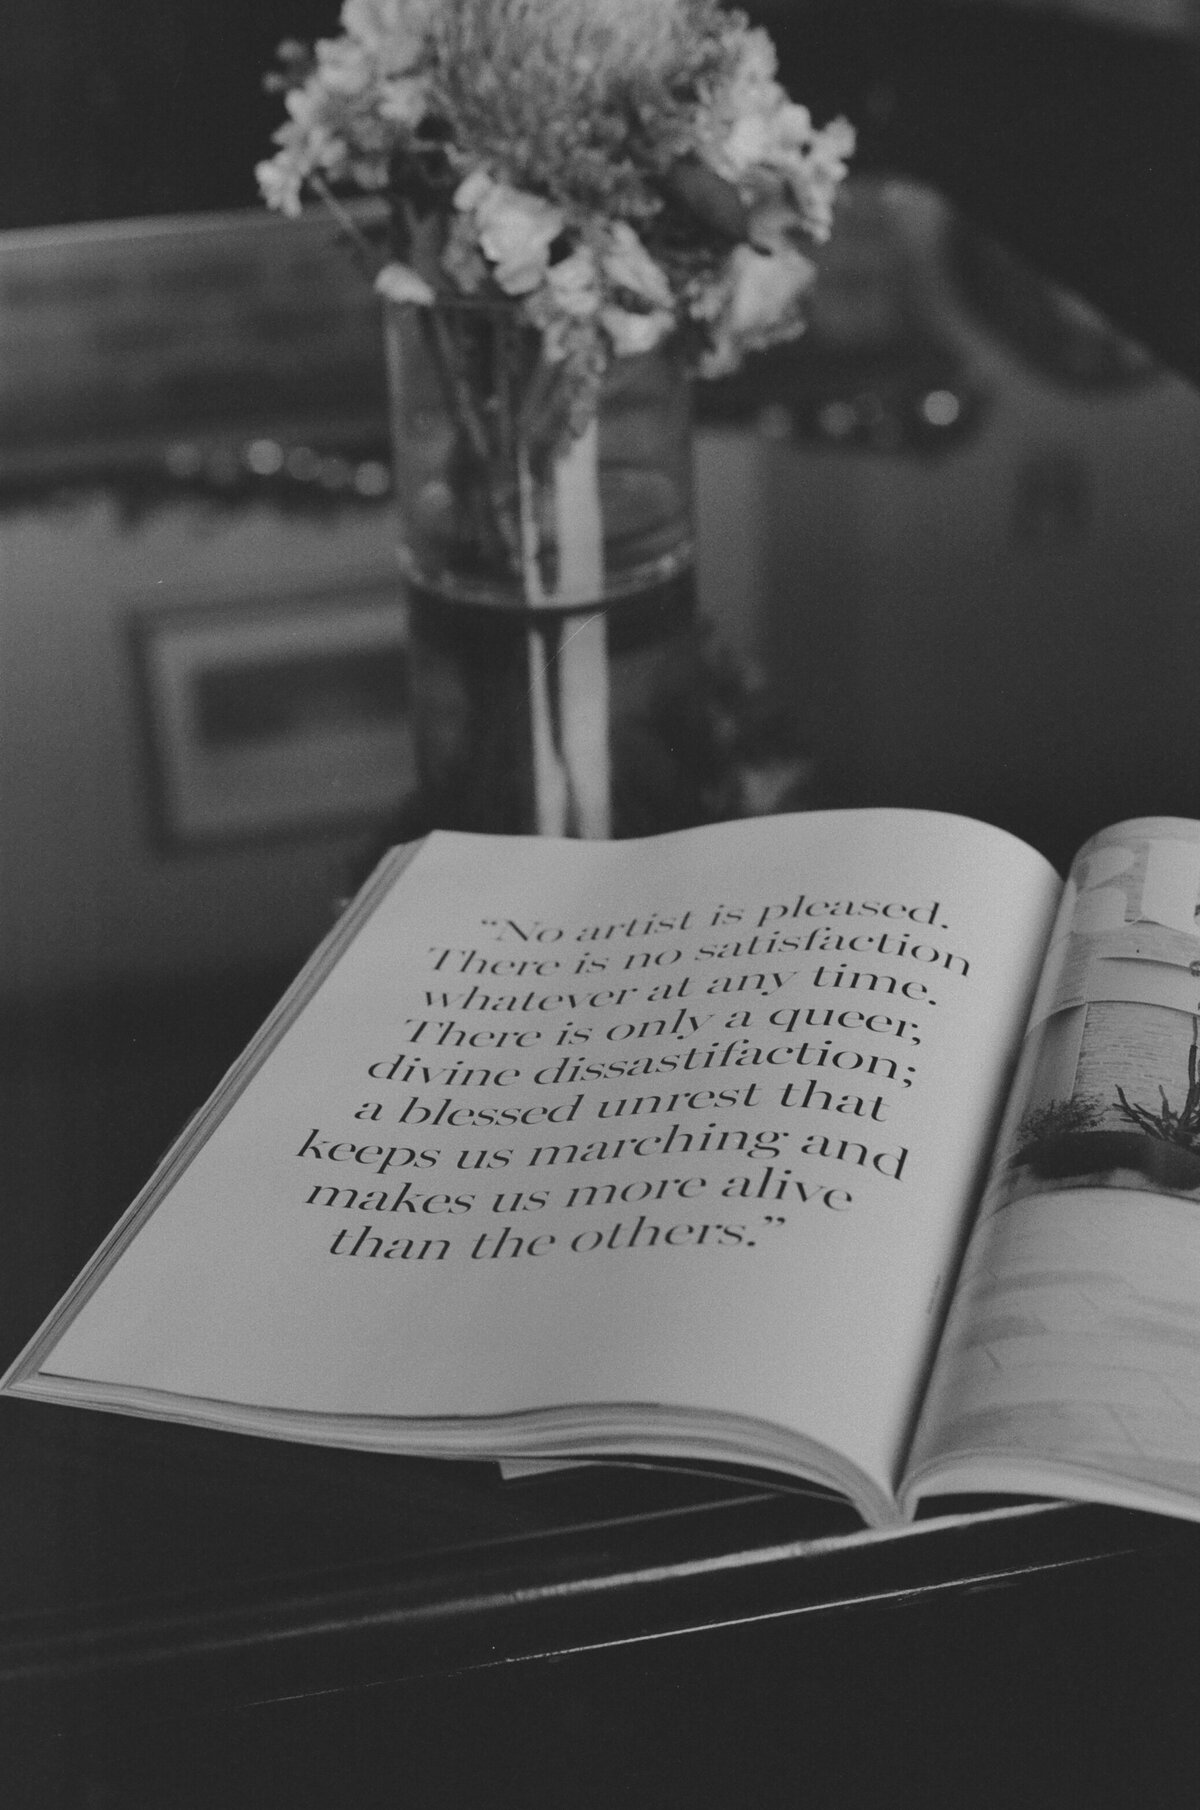 “No artist is pleased.
There is no satisfaction
whatever at any time.
There is only a queer,
divine dissastifaction;
a blessed unrest that
keeps us marching and
makes us more alive
than the others.”